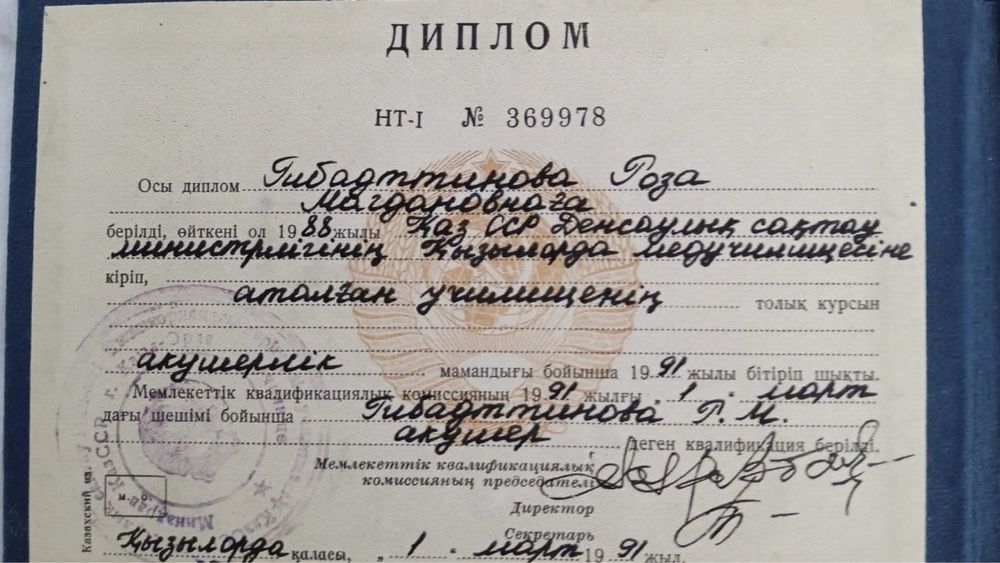 ДИПЛОМ
НТ-I № 369978
Осы диплом Гибадттинова Роза
Магдановнаға
берілді, өйткені ол 1988 жылы Қаз ССР Денсаулық сақтау
министрлігінің Қызылорда медучилищесіне
кіріп,
аталған училищенің толық курсын
акушерлік мамандығы бойынша 1991 жылы бітіріп шықты.
Мемлекеттік квалификациялық комиссияның 1991 жылғы 1 март
дағы шешімі бойынша Гибадттинова Р. М.
акушер деген квалификация берілді.
Мемлекеттік квалификациялық
комиссияның председателі
Директор
Секретарь
Қызылорда қаласы, „ 1 " март 1991 жыл.
Казахский яз.
м. о.